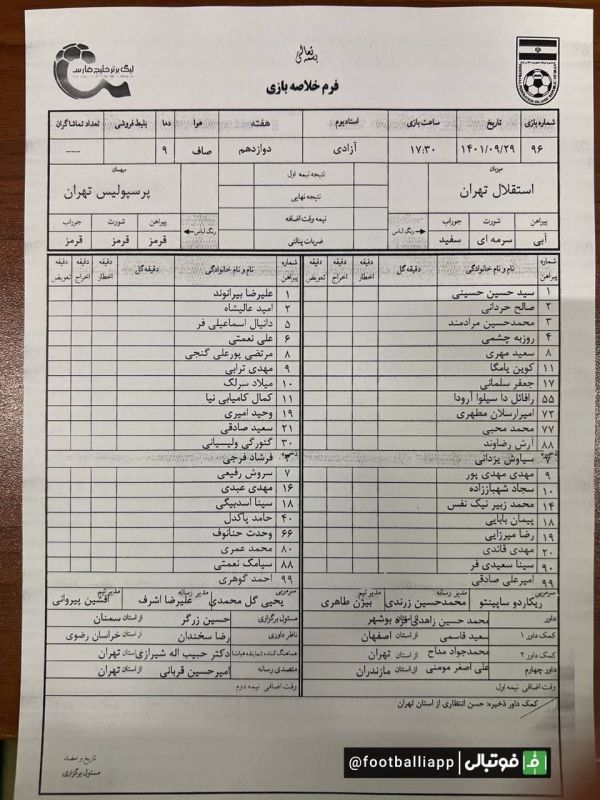 بسمه تعالی
لیگ برتر خلیج فارس
فرم خلاصه بازی
شماره بازی تاریخ ساعت بازی استادیوم هفته هوا دما بلیط فروشی تعداد تماشاگران
۹۶ ۱۴۰۱/۰۹/۲۹ ۱۷:۳۰ آزادی دوازدهم صاف ۹ ---
میزبان نتیجه نیمه اول میهمان
استقلال تهران نتیجه نهایی پرسپولیس تهران
پیراهن شورت جوراب رنگ لباس نیمه وقت اضافه رنگ لباس پیراهن شورت جوراب
آبی سرمه ای سفید ضربات پنالتی قرمز قرمز قرمز
شماره پیراهن نام و نام خانوادگی دقیقه گل دقیقه اخطار دقیقه اخراج دقیقه تعویض شماره پیراهن نام و نام خانوادگی دقیقه گل دقیقه اخطار دقیقه اخراج دقیقه تعویض
۱ سید حسین حسینی ۱ علیرضا بیرانوند
۲ صالح حردانی ۲ امید عالیشاه
۳ محمدحسین مرادمند ۵ دانیال اسماعیلی فر
۴ روزبه چشمی ۶ علی نعمتی
۸ سعید مهری ۸ مرتضی پورعلی گنجی
۱۱ کوین یامگا ۹ مهدی ترابی
۱۷ جعفر سلمانی ۱۰ میلاد سرلک
۵۵ رافائل دا سیلوا آرودا ۱۱ کمال کامیابی نیا
۷۲ امیرارسلان مطهری ۱۹ وحید امیری
۷۷ محمد محبی ۲۱ سعید صادقی
۸۸ آرش رضاوند ۳۰ گئورگی ولیسیانی
سیاوش یزدانی فرشاد فرجی
۹ مهدی مهدی پور ۷ سروش رفیعی
۱۰ سجاد شهباززاده ۱۶ مهدی عبدی
۱۴ محمد زبیر نیک نفس ۱۸ سینا اسدبیگی
۱۸ پیمان بابایی ۴۰ حامد پاکدل
۱۹ رضا میرزایی ۶۶ وحدت حنانوف
۲۰ مهدی قائدی ۸۰ محمد عمری
۹۰ سینا سعیدی فر ۸۸ سیامک نعمتی
۹۹ امیرعلی صادقی ۹۹ احمد گوهری
سرمربی ریکاردو ساپینتو مدیر رسانه محمدحسین زرندی مدیر تیم بیژن طاهری سرمربی یحیی گل محمدی مدیر رسانه علیرضا اشرف مدیر تیم افشین پیروانی
داور محمد حسین زاهدی فر از استان بوشهر مسئول برگزاری حسین زرگر از استان سمنان
کمک داور ۱ سعید قاسمی از استان اصفهان ناظر داوری رضا سخندان از استان خراسان رضوی
کمک داور ۲ محمدجواد مداح از استان تهران هماهنگ کننده (نماینده هیات) دکتر حبیب اله شیرازی از استان تهران
داور چهارم علی اصغر مومنی از استان مازندران متصدی رسانه امیرحسین قربانی از استان تهران
وقت اضافی نیمه اول وقت اضافی نیمه دوم
کمک داور ذخیره: حسن انتظاری از استان تهران
تاریخ و امضاء
مسئول برگزاری
@footballiapp فوتبالی